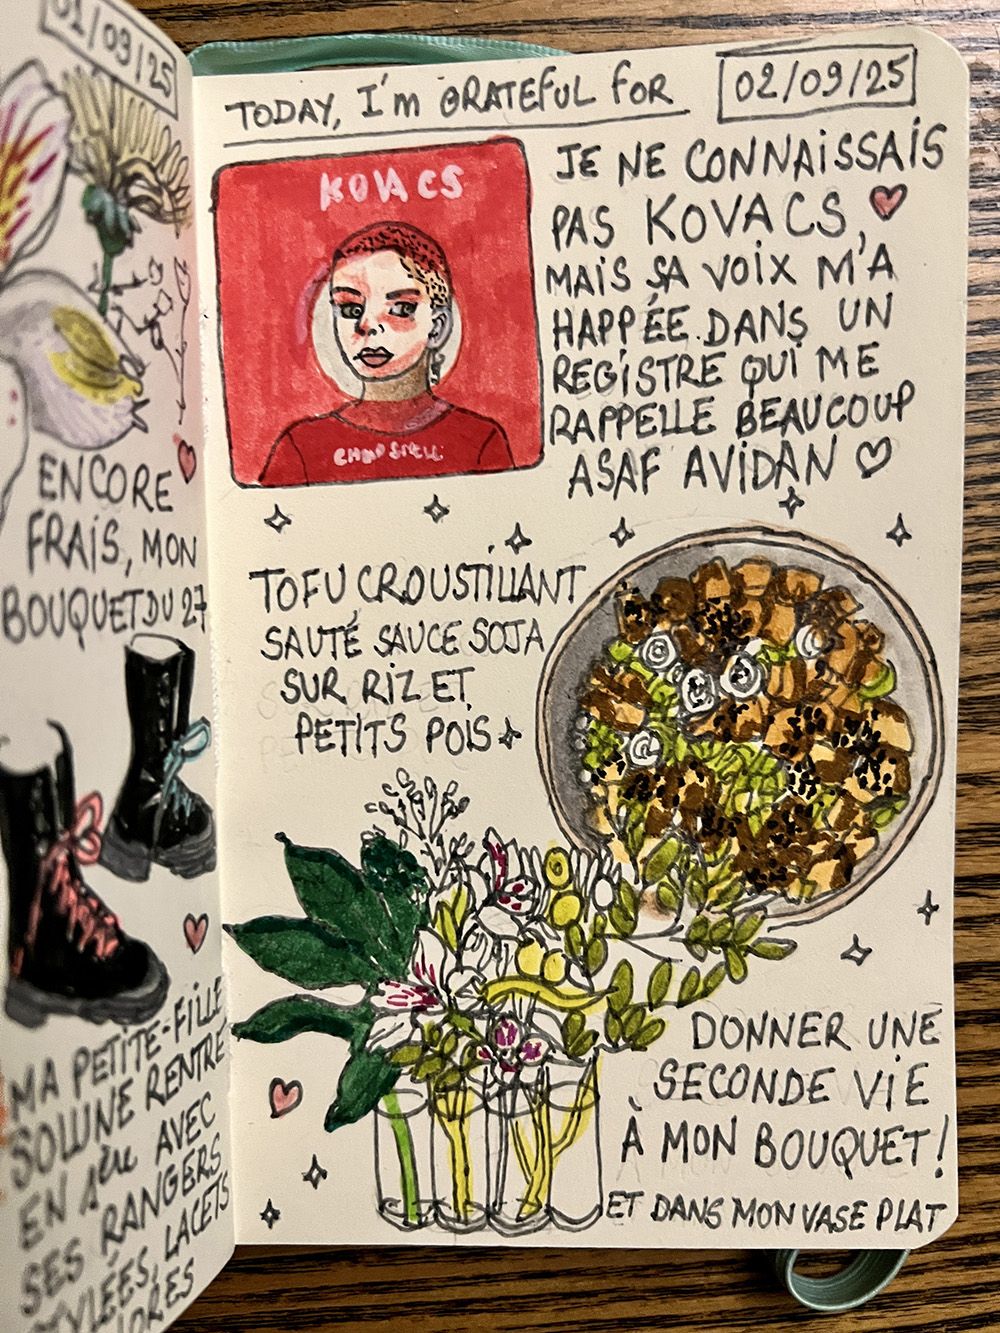 01/09/25
ENCORE
FRAIS, MON
BOUQUET DU 27
MA PETITE-FILLE
SOLUNE RENTRE
EN 1ère AVEC
SES RANGERS
LACETS
TODAY, I'm GRATEFUL FOR
02/09/25
KOVACS
JE NE CONNAISSAIS
PAS KOVACS,
MAIS SA VOIX M'A
HAPPÉE DANS UN
REGISTRE QUI ME
RAPPELLE BEAUCOUP
ASAF AVIDAN
TOFU CROUSTILLANT
SAUTÉ SAUCE SOJA
SUR RIZ ET
PETITS POIS
DONNER UNE
SECONDE VIE
À MON BOUQUET!
ET DANS MON VASE PLAT